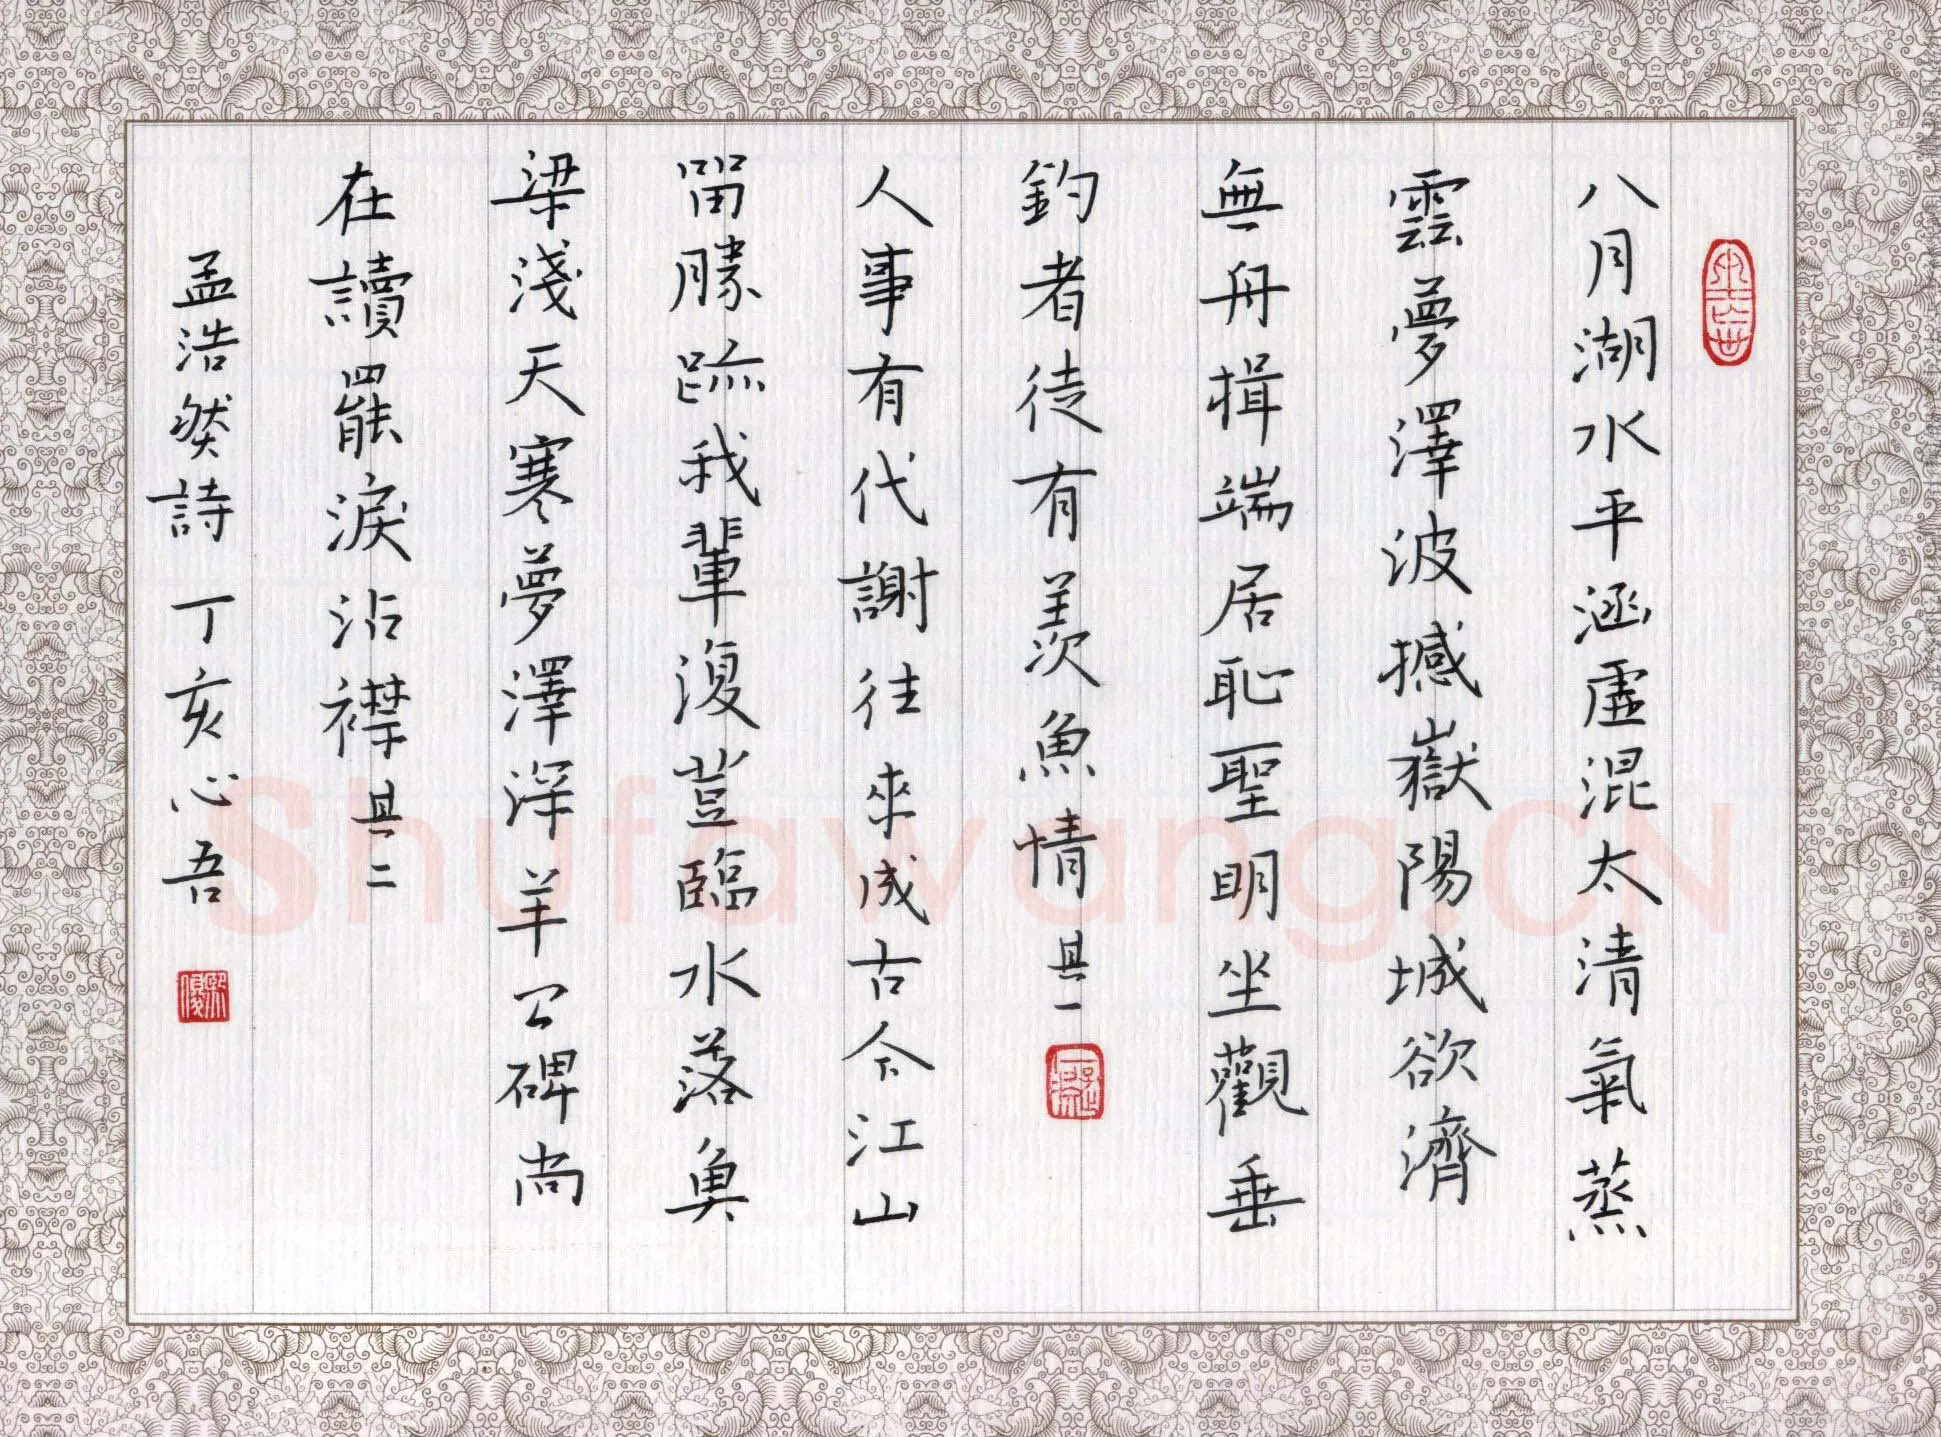 八月湖水平涵虛混太清氣蒸
雲夢澤波撼嶽陽城欲濟
無舟楫端居恥聖明坐觀垂
釣者徒有羨魚情 其一
人事有代謝往來成古今江山
留勝跡我輩復登臨水落魚
梁淺天寒夢澤深羊公碑尚
在讀罷淚沾襟 其二
孟浩然詩丁亥心吾
Shufawang.CN